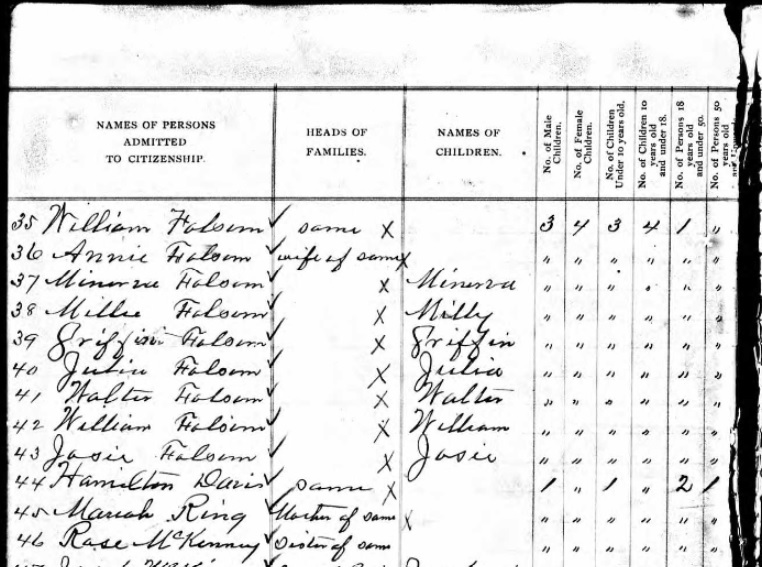 NAMES OF PERSONS ADMITTED TO CITIZENSHIP. HEADS OF FAMILIES. NAMES OF CHILDREN. No. of Male Children. No. of Female Children. No. of Children Under 10 years old. No. of Children 10 years old and under 18. No. of Persons 18 years old and under 50. No. of Persons 50 years old
35 William Folsom ✓ same X 3 4 3 4 1 "
36 Annie Folsom ✓ wife of same X " " " " " "
37 Minerva Folsom ✓ X Minerva " " " " " "
38 Millie Folsom ✓ X Milly " " " " " "
39 Griffin Folsom ✓ X Griffin " " " " " "
40 Julia Folsom ✓ X Julia " " " " " "
41 Walter Folsom ✓ X Walter " " " " " "
42 William Folsom ✓ X William " " " " " "
43 Josie Folsom ✓ X Josie " " " " " "
44 Hamilton Davis ✓ same X 1 " 1 " 2 1
45 Mariah Ring ✓ Mother of same X " " " " " "
46 Rose McKenney ✓ Sister of same " " " " " "